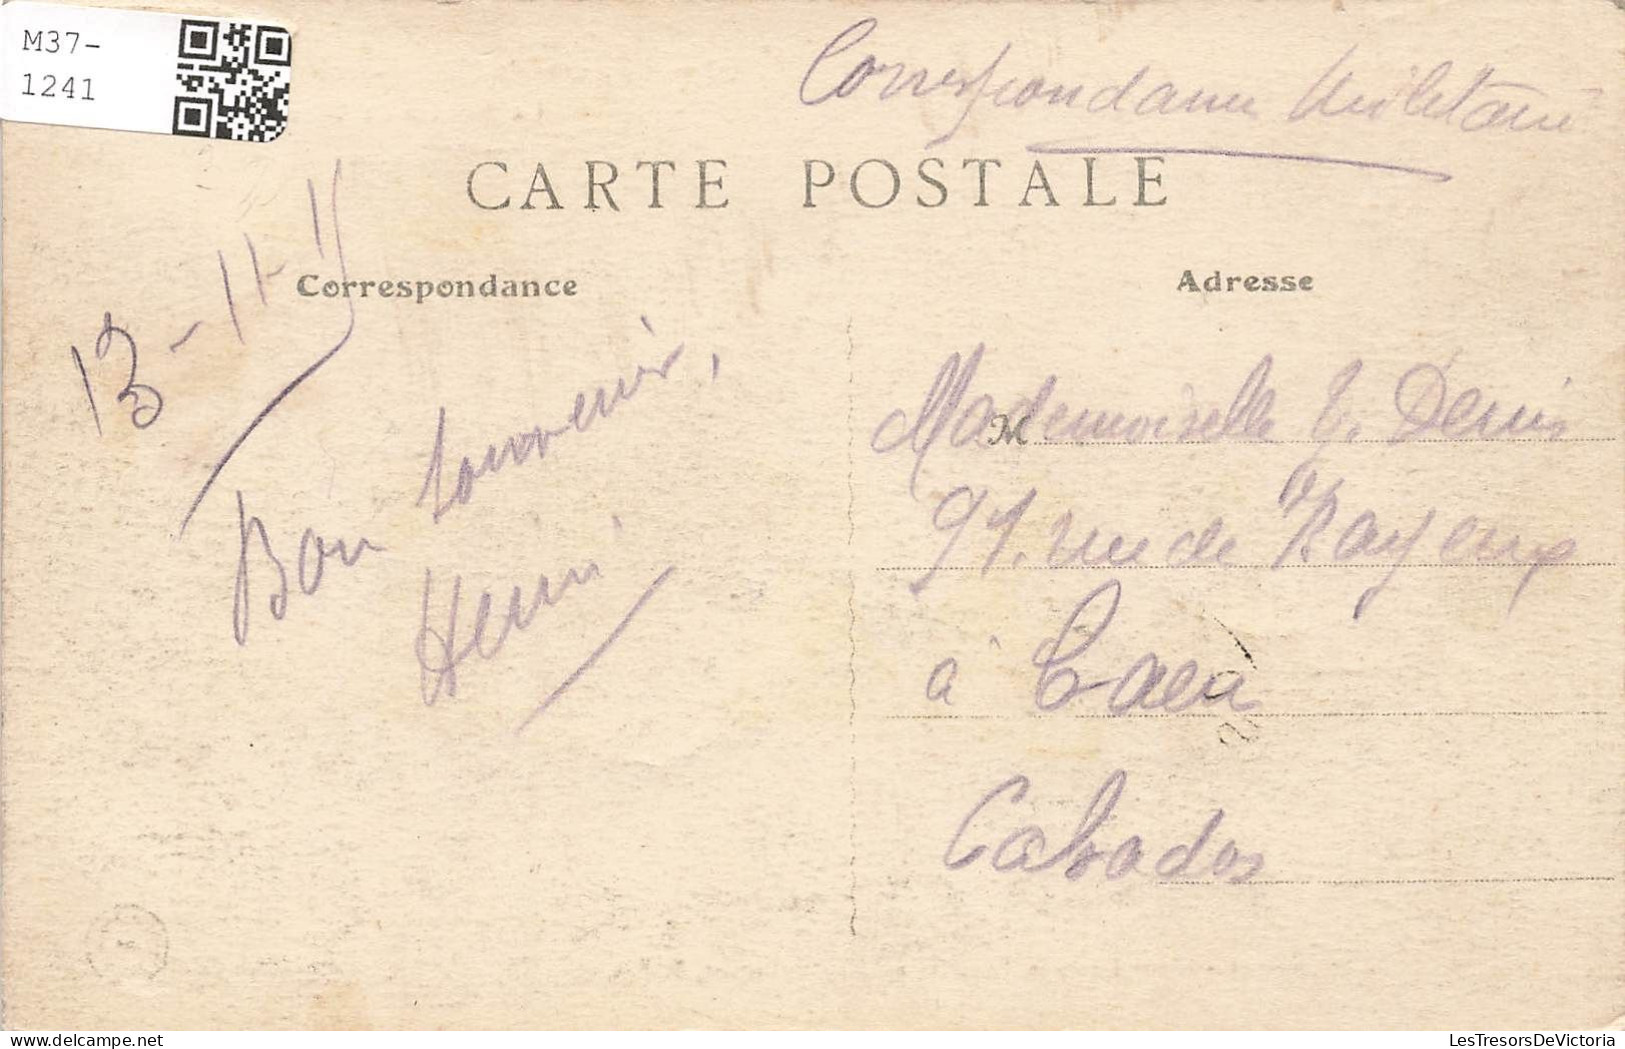 M37-
1241
Correspondance Militaire
CARTE POSTALE
Correspondance
Adresse
13-11-15
Bon souvenir,
Henri
Mademoiselle Y. Denis
M
91. rue de Bayeux
à Caen
Calvados
LesTresorsDeVictoria